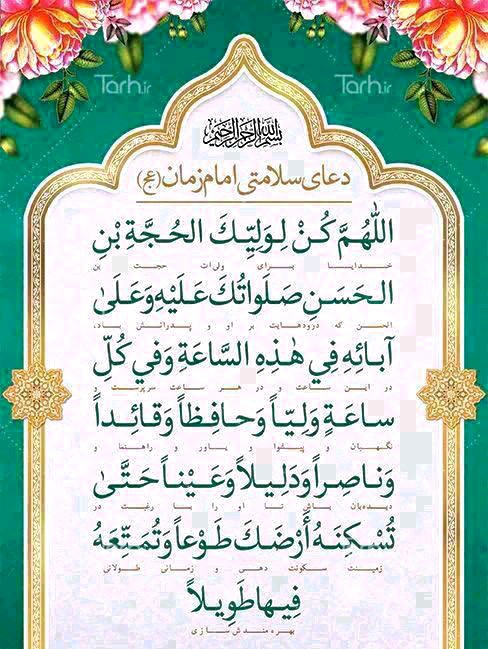 Tarh.ir Tarh.ir
بسم الله الرحمن الرحیم
دعای سلامتی امام زمان (عج)
اللّٰهُمَّ كُنْ لِوَلِيِّكَ الحُجَّةِ بْنِ
خدایا برای ولی‌ات حجت بن
الحَسَنِ صَلَواتُكَ عَلَيْهِ وَعَلَىٰ
الحسن که درودهایت بر او و پدرانش باد،
آبائِهِ فِي هٰذِهِ السَّاعَةِ وَفي كُلِّ
در این ساعت و در هر ساعت سرپرست و
ساعَةٍ وَلِيّاً وَحافِظاً وَقائِداً
نگهبان و پیشوا و یاور و راهنما و
وَناصِراً وَدَلِيلاً وَعَيْناً حَتَّىٰ
دیده‌بان باش تا او را با رغبت در
تُسْكِنَهُ أَرْضَكَ طَوْعاً وَتُمَتِّعَهُ
زمینت سکونت دهی و زمانی طولانی
فِيها طَوِيلاً
بهره مندش سازی